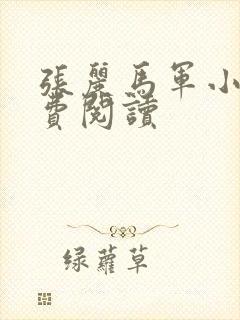 張麗馬軍小
費閱讀
綠蘿草